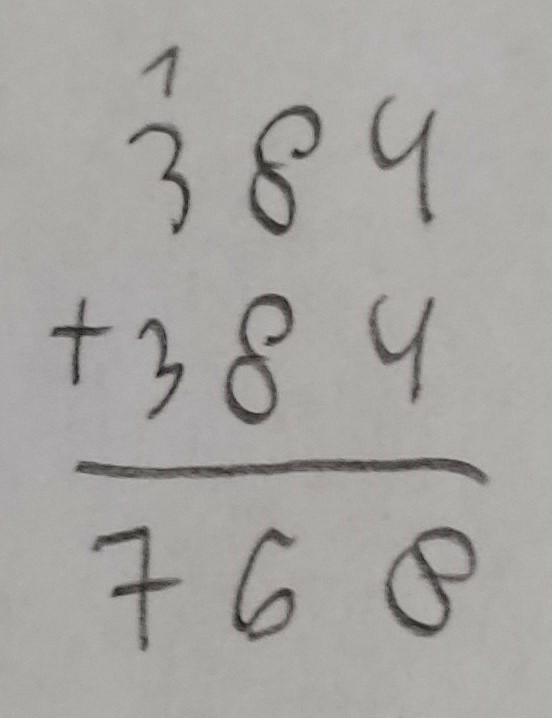 1
384
+384
768